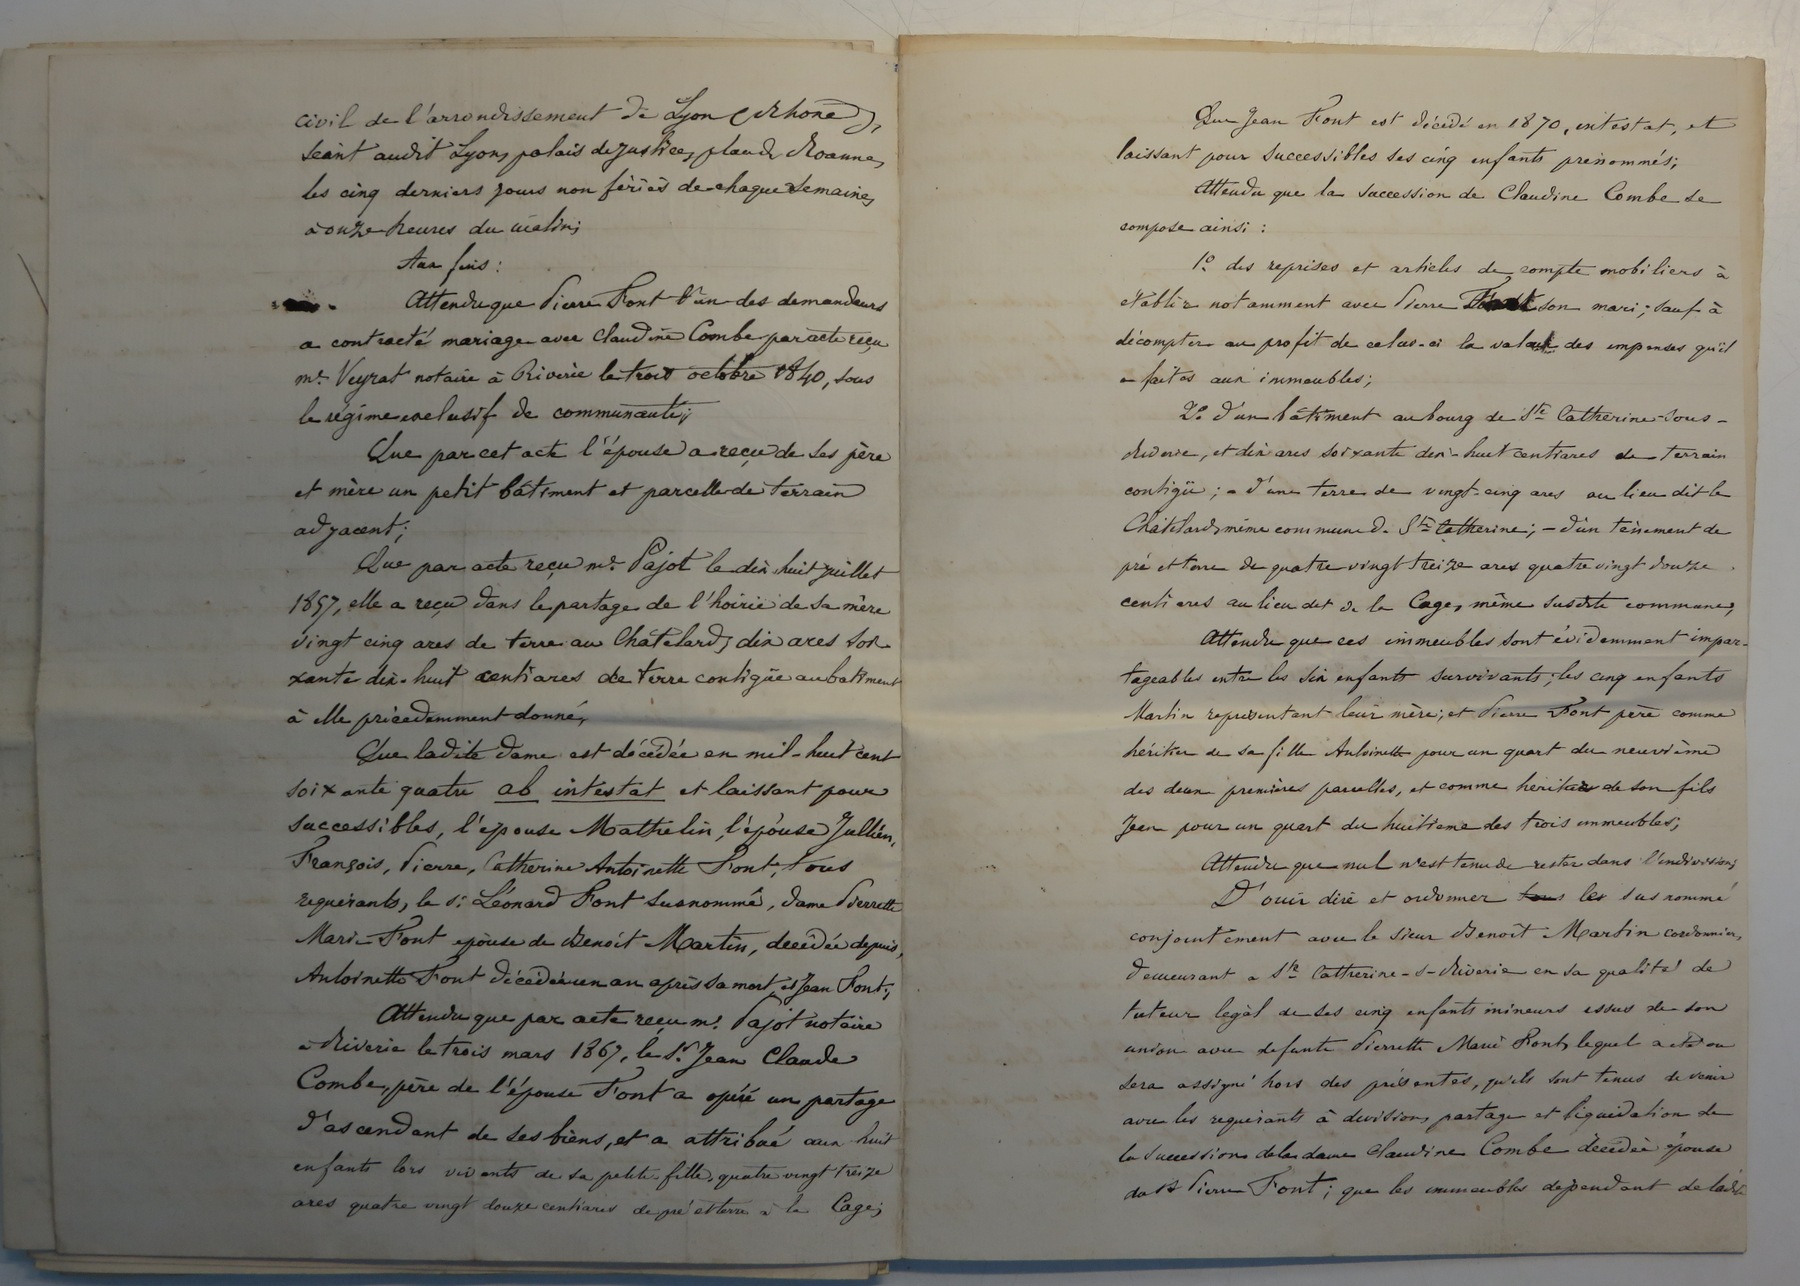 civil de l'arrondissement de Lyon (Rhône),
séant audit Lyon, palais de justice, place de Roanne,
les cinq derniers jours non fériés de chaque semaine,
à onze heures du matin;
Aux fins:
Attendu que Pierre Font l'un des demandeurs
a contracté mariage avec Claudine Combe par acte reçu
me. Veyrat notaire à Riverie le trois octobre 1840, sous
le régime exclusif de communauté;
Que par cet acte l'épouse a reçu de ses père
et mère un petit bâtiment et parcelle de terrain
adjacent;
Que par acte reçu me. Pajot le dix huit juillet
1857, elle a reçu dans le partage de l'hoirie de sa mère
vingt cinq ares de terre au Châtelard, dix ares soi-
xante dix-huit centiares de terre contigüe au batiment
à elle précedemment donné,
Que ladite dame est décédée en mil-huit cent
soixante quatre ab intestat et laissant pour
successibles, l'épouse Mathelin, l'épouse Jullien,
François, Pierre, Catherine Antoinette Font, tous
requérants, le sr. Léonard Font susnommé, dame Pierrette
Marie Font épouse de Benoît Martin, décédée depuis,
Antoinette Font décédée un an après sa mort, et Jean Font;
Attendu que par acte reçu me. Pajot notaire
a Riverie le trois mars 1867, le Sr. Jean Claude
Combe, père de l'épouse Font a opéré un partage
d'ascendant de ses biens, et a attribué aux huit
enfants lors vivants de sa petite fille, quatre vingt treize
ares quatre vingt douze centiares de pré et terre à la Cage;
Que Jean Font est décédé en 1870, intestat, et
laissant pour successibles ses cinq enfants prénommés;
Attendu que la succession de Claudine Combe se
compose ainsi:
1o des reprises et articles de compte mobiliers à
établir notamment avec Pierre Font son mari; sauf à
décompter au profit de celui-ci la valeur des impenses qu'il
a faites aux immeubles;
2o d'un bâtiment au bourg de Ste Catherine-sous-
Riverie, et dix ares soixante dix-huit centiares de terrain
contigü; - d'une terre de vingt-cinq ares au lieu dit le
Châtelard, même commune de Ste Catherine; - d'un tènement de
pré et terre de quatre vingt treize ares quatre vingt douze
centiares au lieu dit de la Cage, même susdite commune,
Attendu que ces immeubles sont évidemment impar-
tageables entre les six enfants survivants; les cinq enfants
Martin représentant leur mère; et Pierre Font père comme
héritier de sa fille Antoinette pour un quart du neuvième
des deux premières parcelles, et comme héritier de son fils
Jean pour un quart du huitième des trois immeubles;
Attendu que nul n'est tenu de rester dans l'indivision;
D'ouïr dire et ordonner tous les susnommé
conjointement avec le sieur Benoît Martin cordonnier,
demeurant a Ste Catherine-s-Riverie en sa qualité de
tuteur légal de ses cinq enfants mineurs issus de son
union avec defunte Pierrette Marie Font, lequel a été ou
sera assigné hors des présentes, qu'ils sont tenus de venir
avec les requérants à division, partage et liquidation de
la succession de la dame Claudine Combe décédée épouse
du st Pierre Font; que les immeubles dépendant de ladite